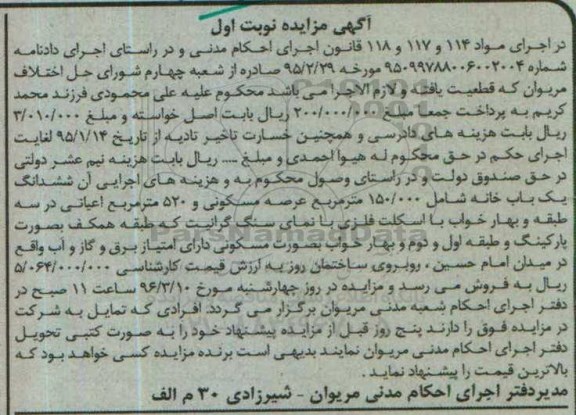 آگهی مزایده نوبت اول
در اجرای مواد ۱۱۴ و ۱۱۷ و ۱۱۸ قانون اجرای احکام مدنی و در راستای اجرای دادنامه
شماره ۹۵۰۹۹۷۸۸۰۰۶۰۰۲۰۰۴ مورخه ۹۵/۲/۲۹ صادره از شعبه چهارم شورای حل اختلاف
مریوان که قطعیت یافته و لازم الاجرا می باشد محکوم علیه علی محمودی فرزند محمد
کریم به پرداخت جمعا مبلغ ۲۰۰/۰۰۰/۰۰۰ ریال بابت اصل خواسته و مبلغ ۳/۰۱۰/۰۰۰
ریال بابت هزینه های دادرسی و همچنین خسارت تاخیر تادیه از تاریخ ۹۵/۱/۱۴ لغایت
اجرای حکم در حق محکوم له هیوا احمدی و مبلغ .... ریال بابت هزینه نیم عشر دولتی
در حق صندوق دولت و در راستای وصول محکوم به و هزینه های اجرایی آن ششدانگ
یک باب خانه شامل ۱۵۰/۰۰۰ مترمربع عرصه مسکونی و ۵۲۰ مترمربع اعیانی در سه
طبقه و بهار خواب با اسکلت فلزی با نمای سنگ گرانیت که طبقه همکف بصورت
پارکینگ و طبقه اول و دوم و بهار خواب بصورت مسکونی دارای امتیاز برق و گاز و آب واقع
در میدان امام حسین ، روبروی ساختمان روز به ارزش قیمت کارشناسی ۵/۰۶۴/۰۰۰/۰۰۰
ریال به فروش می رسد و مزایده در روز چهارشنبه مورخ ۹۶/۳/۱۰ ساعت ۱۱ صبح در
دفتر اجرای احکام شعبه مدنی مریوان برگزار می گردد افرادی که تمایل به شرکت
در مزایده فوق را دارند پنج روز قبل از مزایده پیشنهاد خود را به صورت کتبی تحویل
دفتر اجرای احکام مدنی مریوان نمایند بدیهی است برنده مزایده کسی خواهد بود که
بالاترین قیمت را پیشنهاد نماید .
مدیردفتر اجرای احکام مدنی مریوان - شیرزادی ۳۰ م الف
ParsNamadData